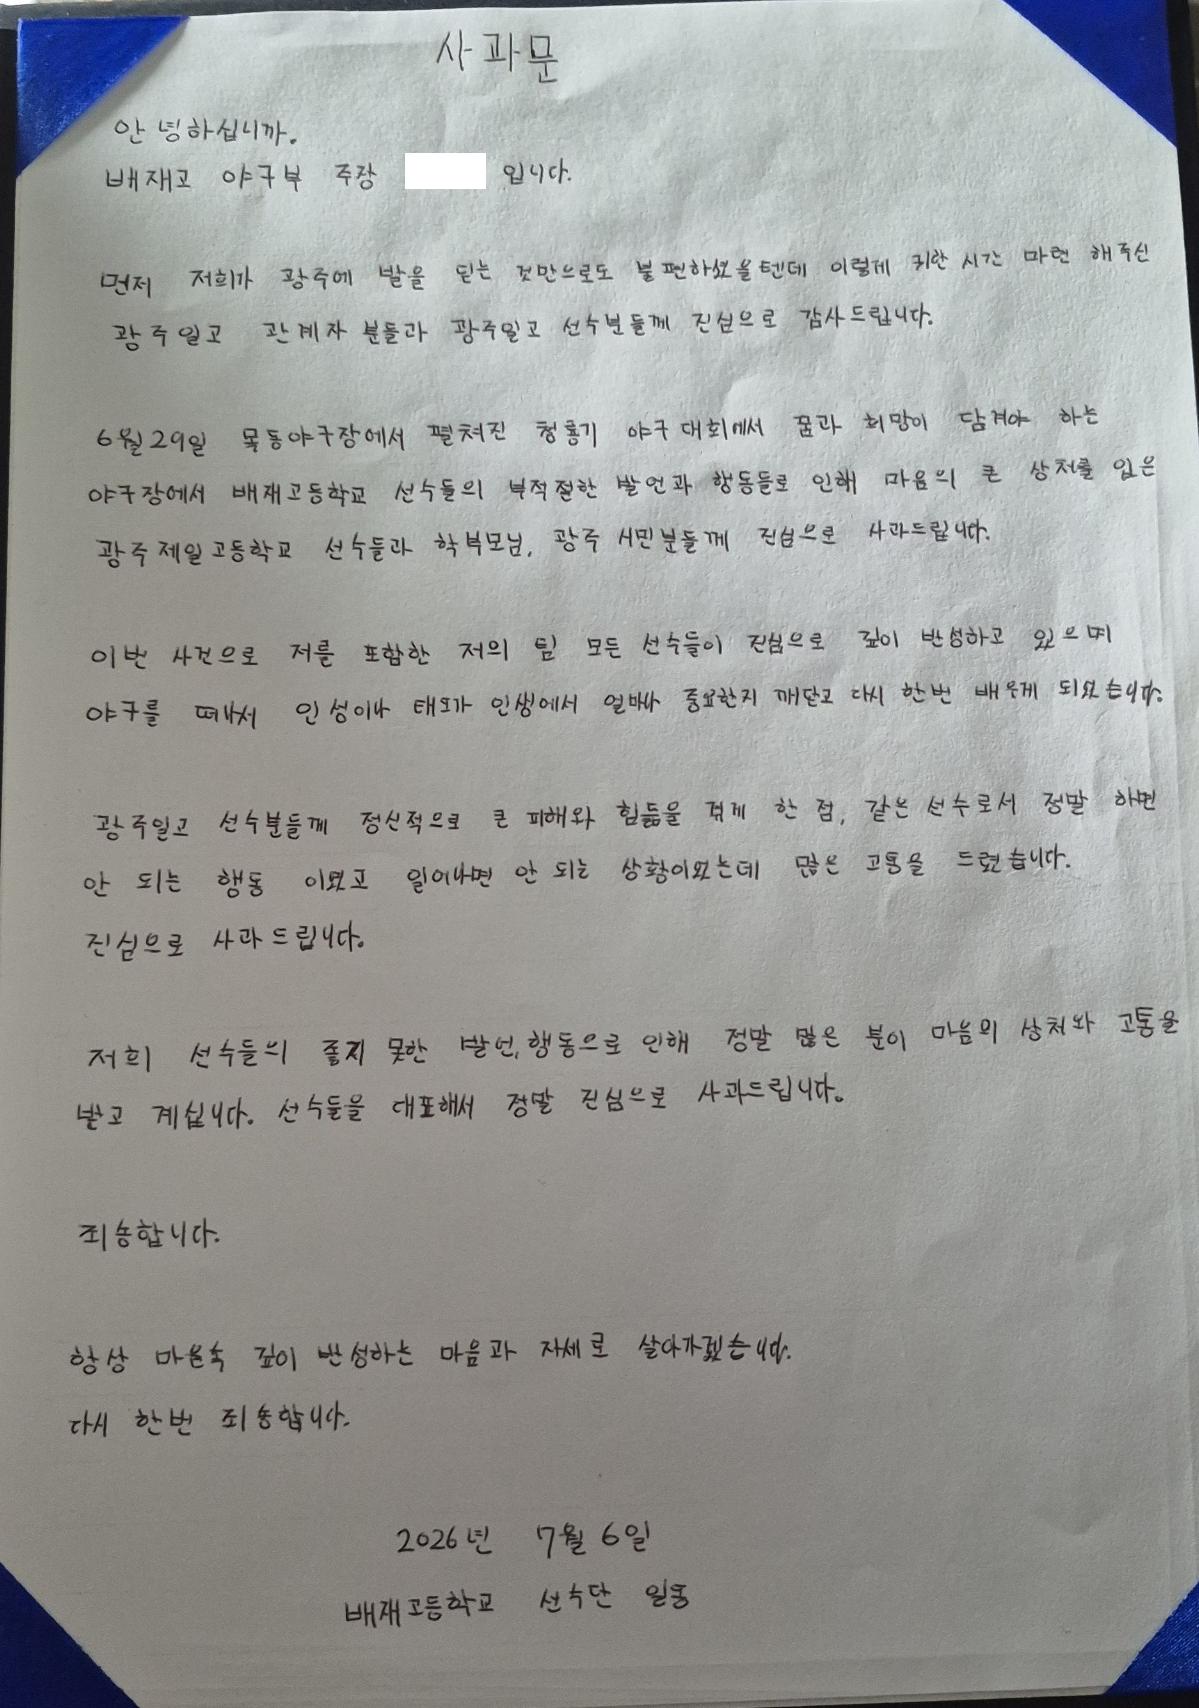 사과문
안녕하십니까.
배재고 야구부 주장 입니다.
먼저 저희가 광주에 발을 딛는 것만으로도 불편하셨을텐데 이렇게 귀한 시간 마련 해주신
광주일고 관계자 분들과 광주일고 선수분들께 진심으로 감사드립니다.
6월29일 목동야구장에서 펼쳐진 청룡기 야구대회에서 꿈과 희망이 담겨야 하는
야구장에서 배재고등학교 선수들의 부적절한 발언과 행동들로 인해 마음의 큰 상처를 입은
광주제일고등학교 선수들과 학부모님, 광주 시민분들께 진심으로 사과드립니다.
이번 사건으로 저를 포함한 저의 팀 모든 선수들이 진심으로 깊이 반성하고 있으며
야구를 떠나서 인성이나 태도가 인생에서 얼마나 중요한지 깨닫고 다시 한번 배우게 되었습니다.
광주일고 선수분들께 정신적으로 큰 피해와 힘듦을 겪게 한 점, 같은 선수로서 정말 하면
안 되는 행동 이었고 일어나면 안 되는 상황이었는데 많은 고통을 드렸습니다.
진심으로 사과드립니다.
저희 선수들의 좋지 못한 발언, 행동으로 인해 정말 많은 분이 마음의 상처와 고통을
받고 계십니다. 선수들을 대표해서 정말 진심으로 사과드립니다.
죄송합니다.
항상 마음속 깊이 반성하는 마음과 자세로 살아가겠습니다.
다시 한번 죄송합니다.
2026년 7월 6일
배재고등학교 선수단 일동